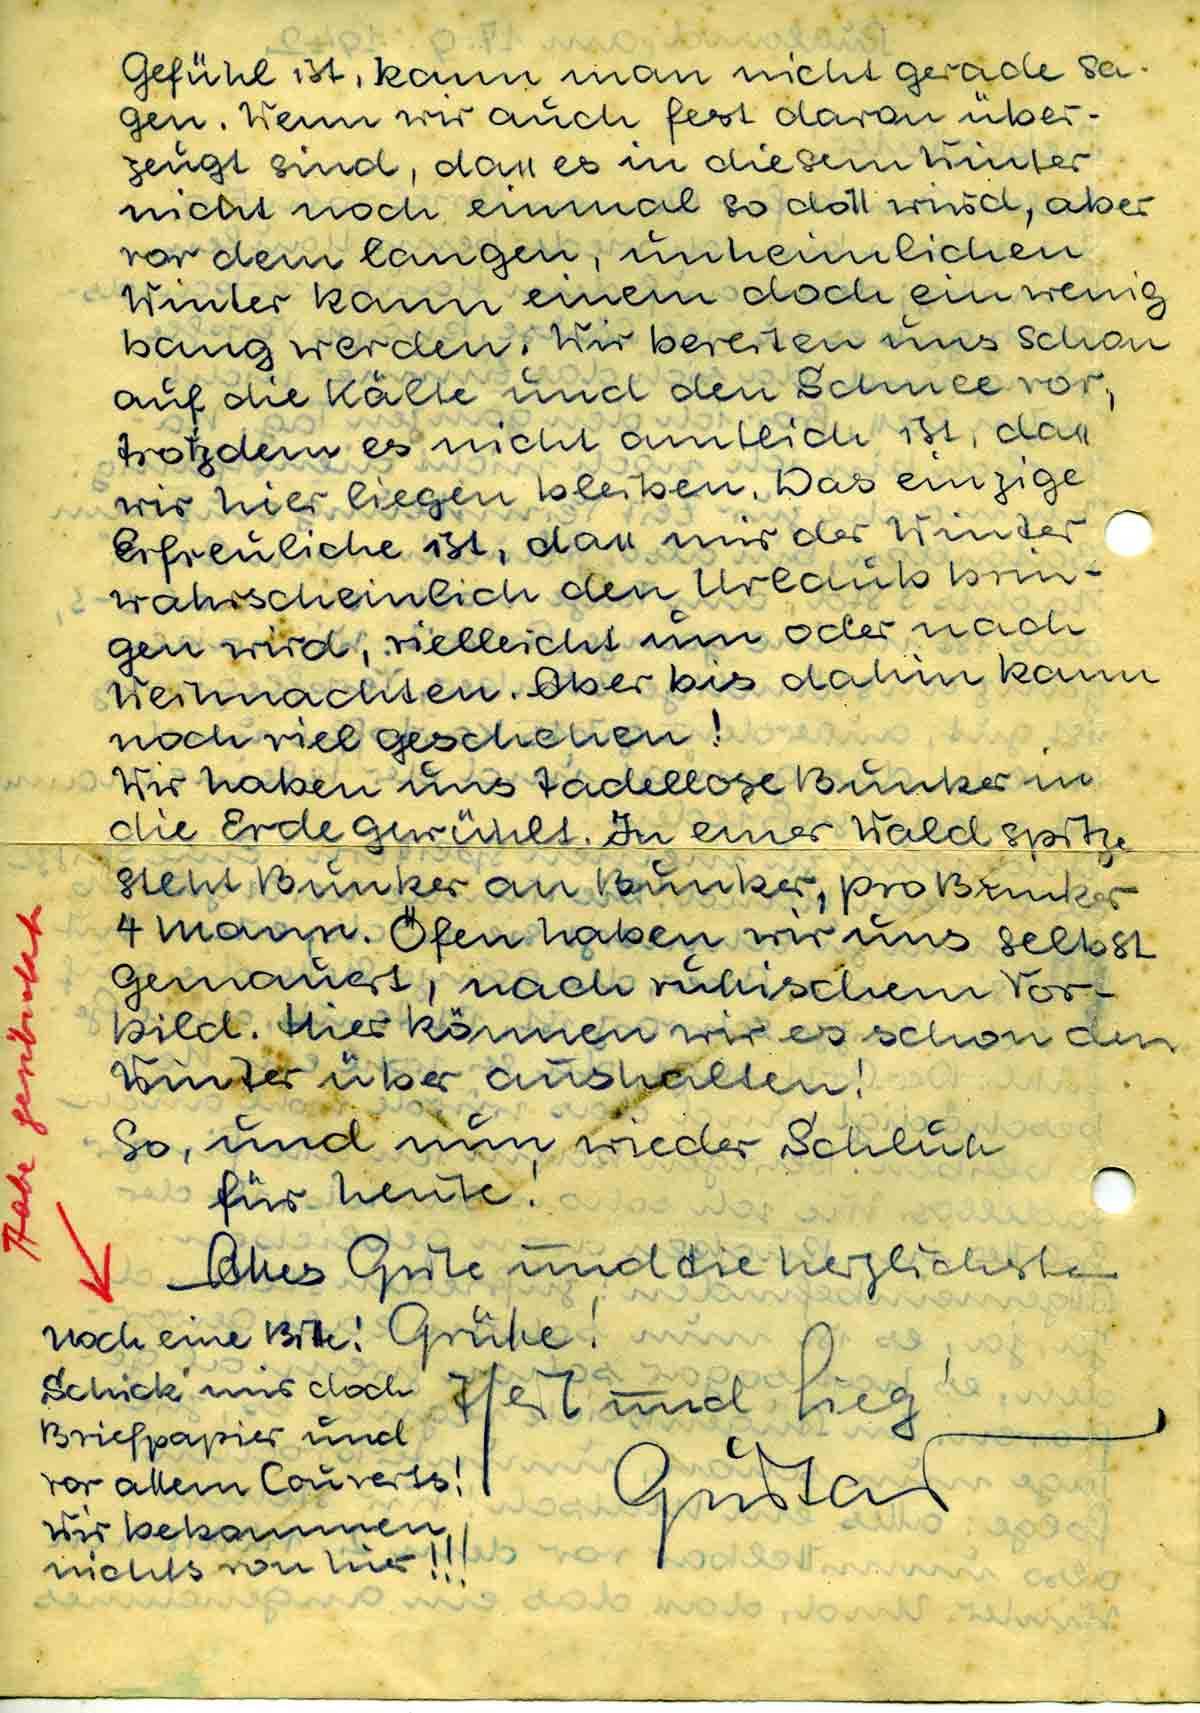 Gefühl ist, kann man nicht gerade sa-
gen. Wenn wir auch fest daran über-
zeugt sind, daß es in diesem Winter
nicht noch einmal so doll wird, aber
vor dem langen, unheimlichen
Winter kann einem doch ein wenig
bang werden. Wir bereiten uns schon
auf die Kälte und den Schnee vor,
trotzdem es nicht amtlich ist, daß
wir hier liegen bleiben. Das einzige
Erfreuliche ist, daß mir der Winter
wahrscheinlich den Urlaub brin-
gen wird, vielleicht um oder nach
Weihnachten. Aber bis dahin kann
noch viel geschehen!
Wir haben uns tadellose Bunker in
die Erde gewühlt. In einer Waldspitze
steht Bunker an Bunker, pro Bunker
4 Mann. Öfen haben wir uns selbst
gemauert, nach rußischem Vor-
bild. Hier können wir es schon den
Winter über aushalten!
So, und nun wieder Schluß
für heute!
Alles Gute und die herzlichsten
Grüße!
Heil und Sieg!
Gustav
noch eine Bitte!
Schick' mir doch
Briefpapier und
vor allem Couverts!
Wir bekommen
nichts von hier!!!
Habe
am 17.9.1942